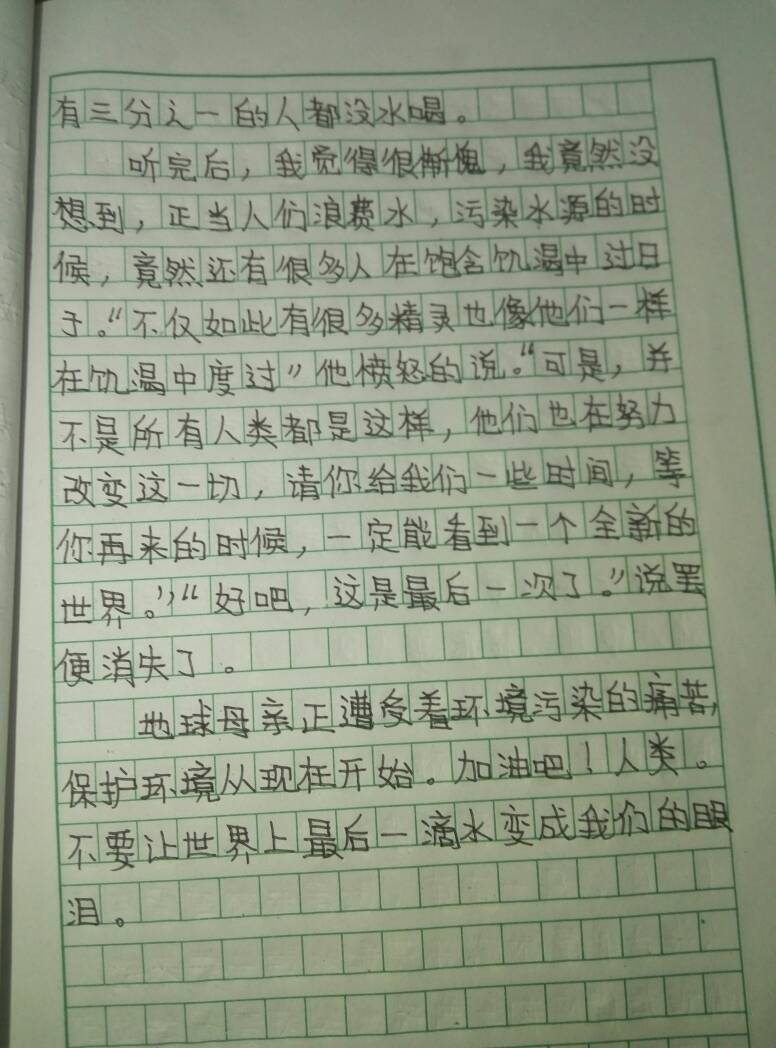 有三分之一的人都没水喝。
听完后，我觉得很惭愧，我竟然没
想到，正当人们浪费水，污染水源的时
候，竟然还有很多人在饱含饥渴中过日
子。“不仅如此有很多精灵也像他们一样
在饥渴中度过”他愤怒的说。“可是，并
不是所有人类都是这样，他们也在努力
改变这一切，请你给我们一些时间，等
你再来的时候，一定能看到一个全新的
世界。”“好吧，这是最后一次了。”说罢
便消失了。
地球母亲正遭受着环境污染的痛苦，
保护环境从现在开始。加油吧！人类。
不要让世界上最后一滴水变成我们的眼
泪。